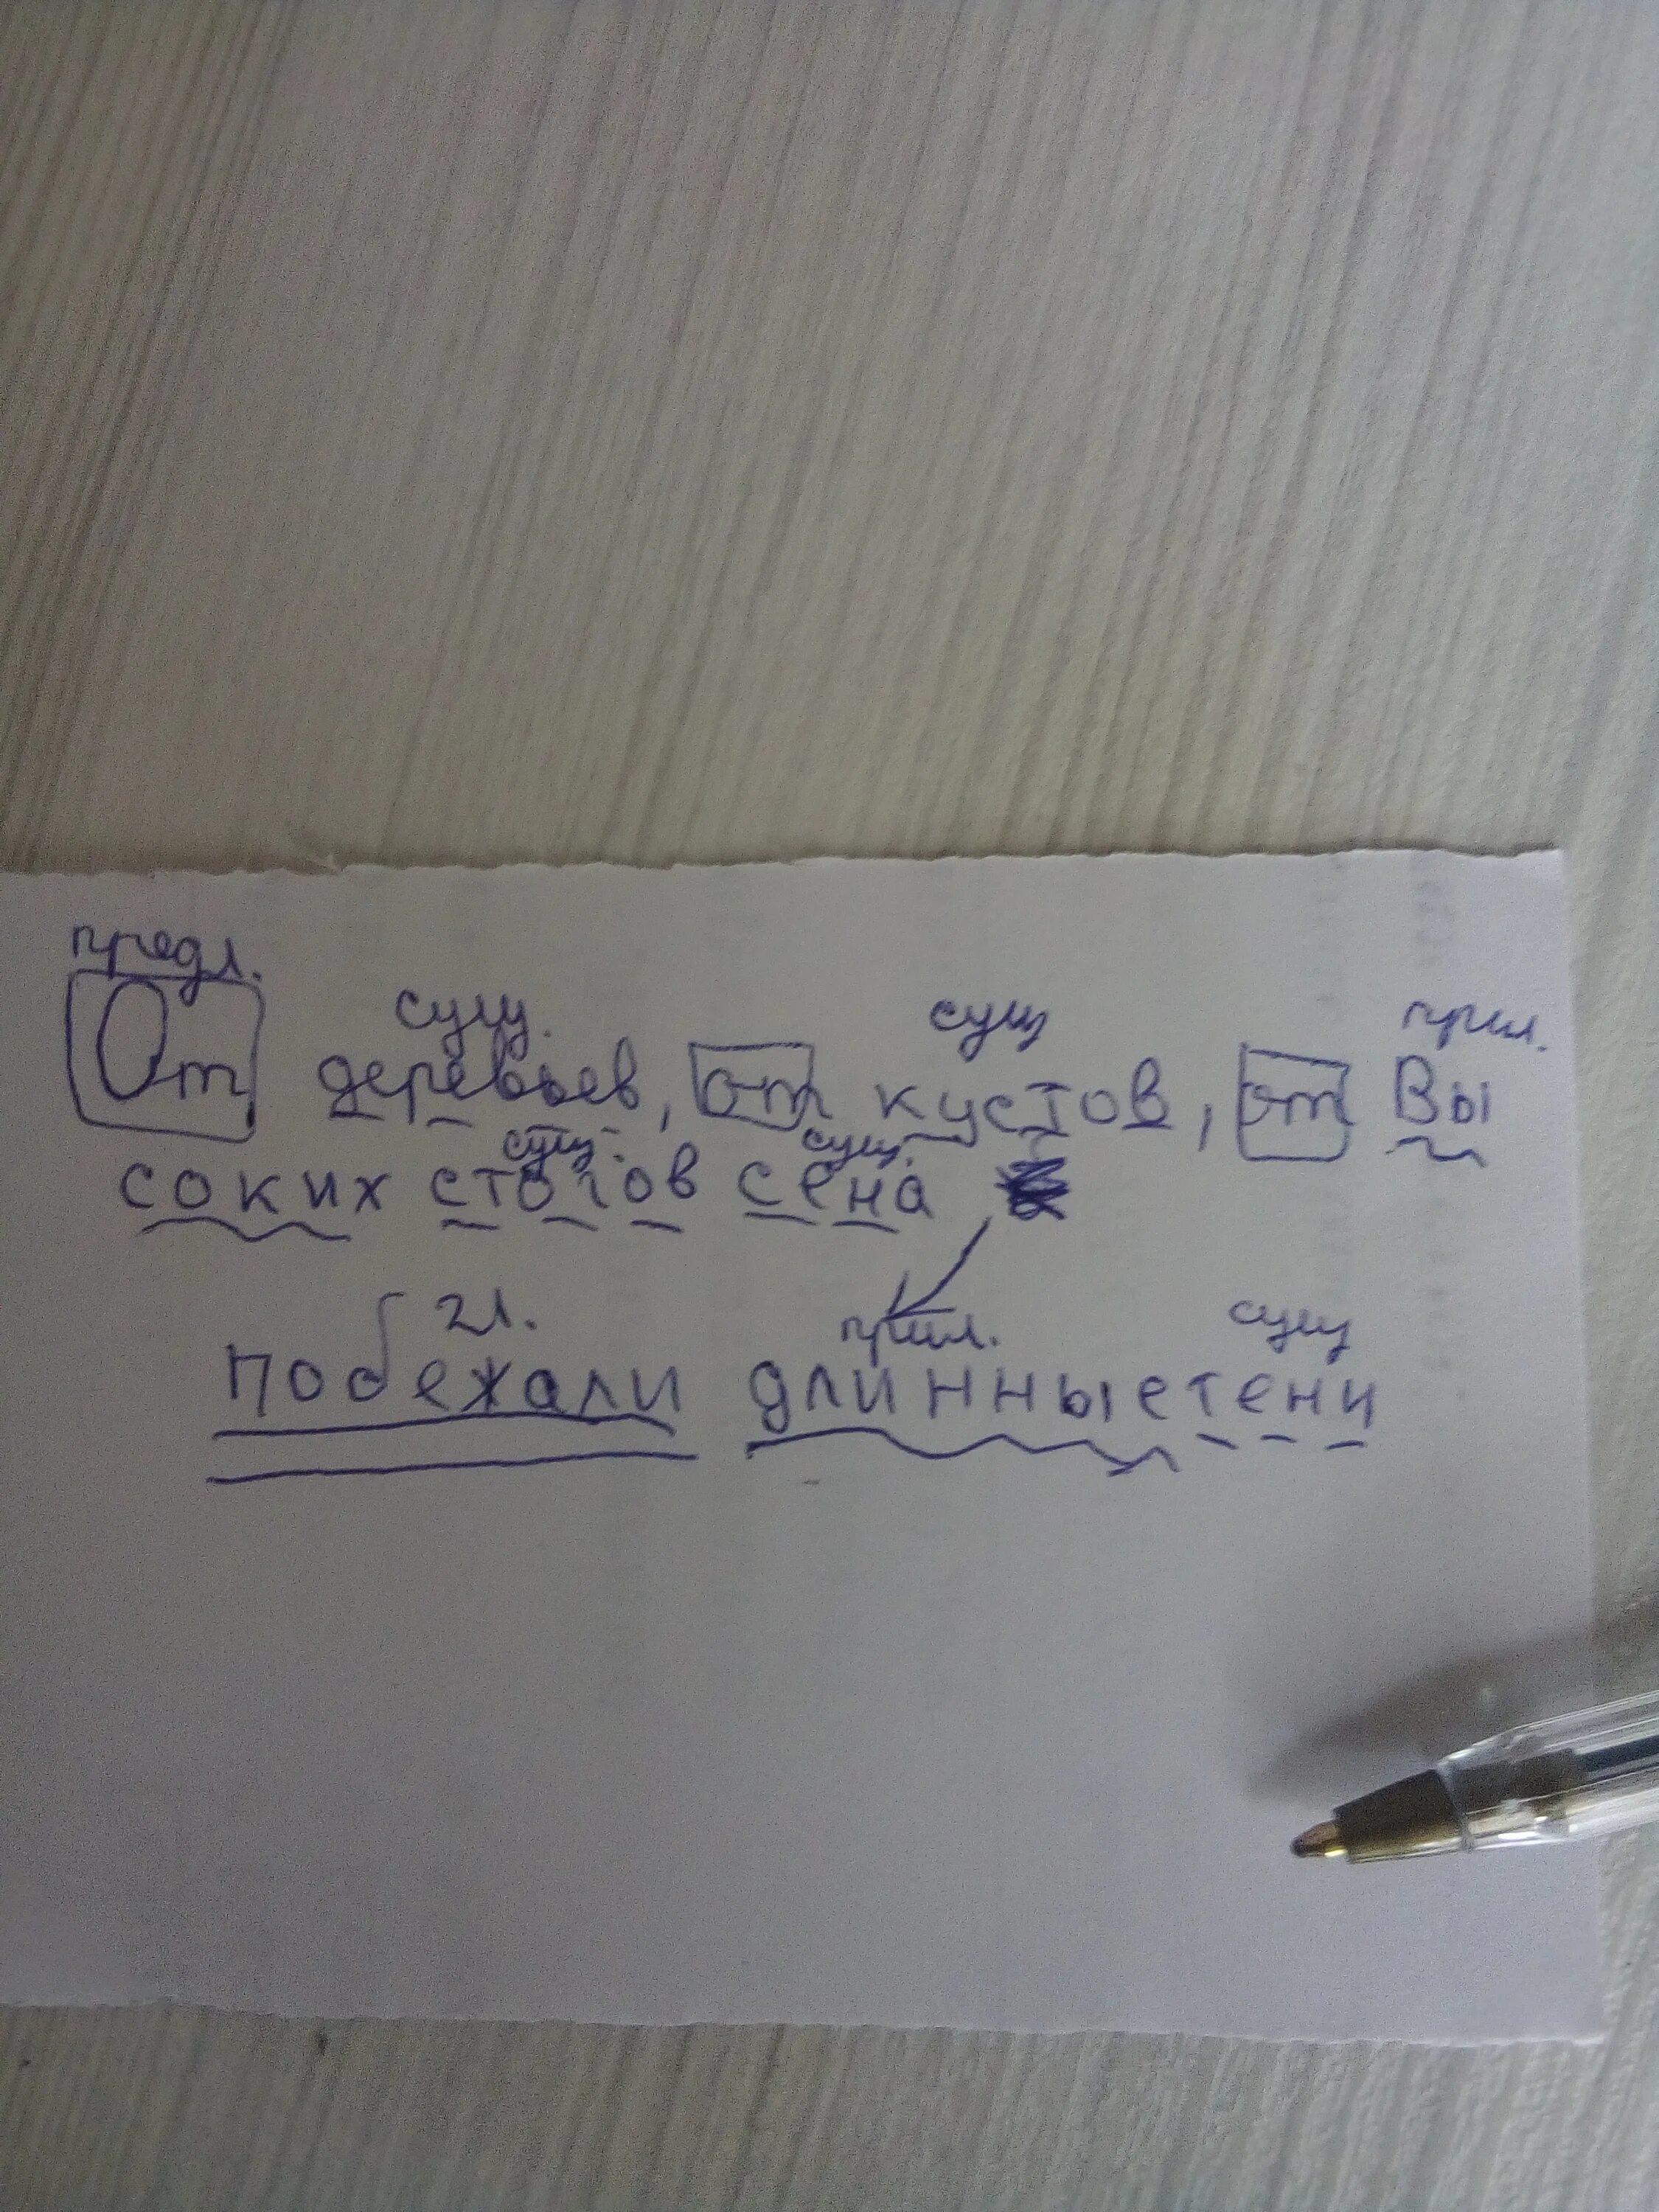 предл.
сущ. сущ прил.
От деревьев, от кустов, от Вы
сущ. сущ.
соких стогов сена
гл. прил. сущ
побежали длинные тени